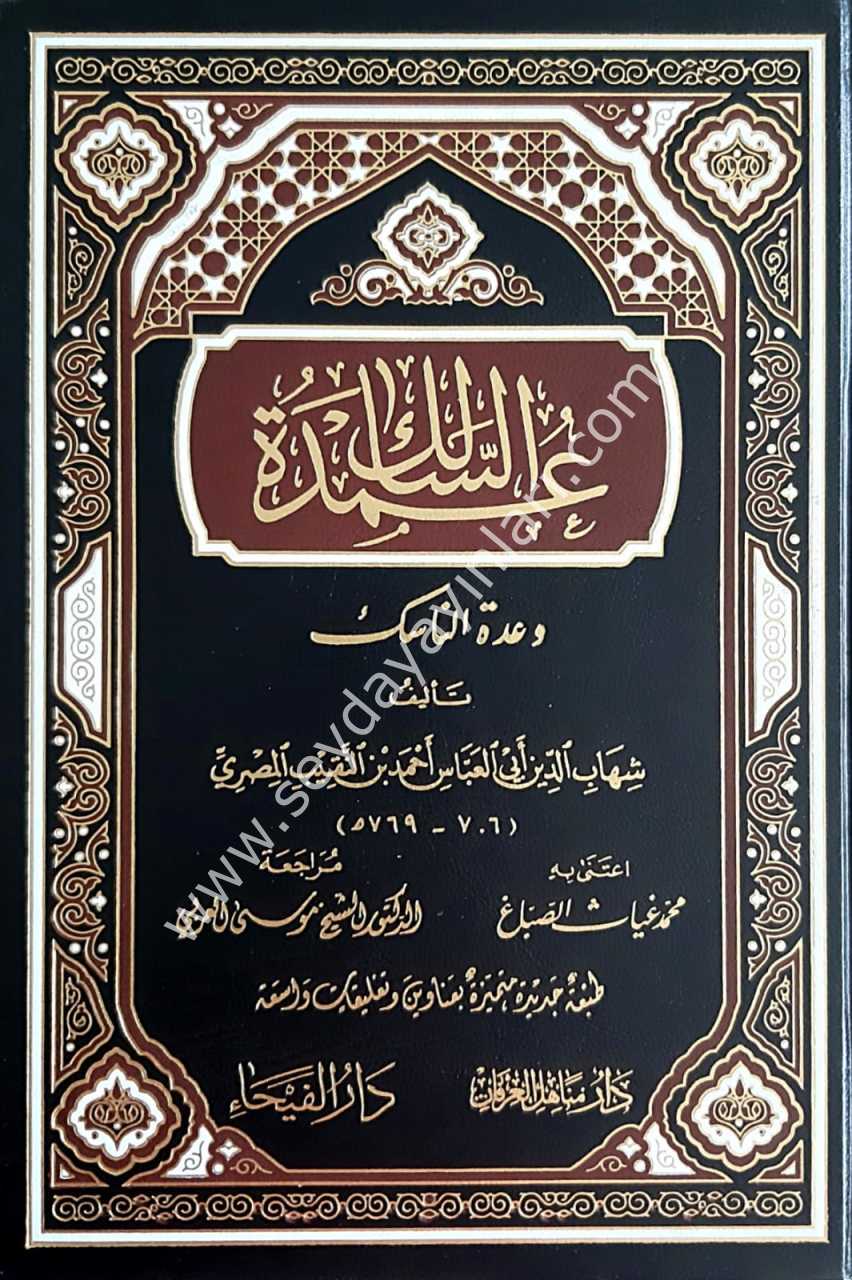 عُمْدَةُ السَّالِك
وعدة الناسك
تأليف
شِهَابِ الدِّين أَبِي العَبَّاس أَحْمَد بْن النَّقِيب المِصْرِيّ
(٧٠٦ - ٧٦٩ه)
اعتنى به
محمد غياث الصباغ
مراجعة
الدكتور الشيخ موسى
طبعة جديدة متميزة بعناوين وتعليقات واسعة
دار مناهل العرفان
دار الفيحاء
www.sevdayayinlari.com